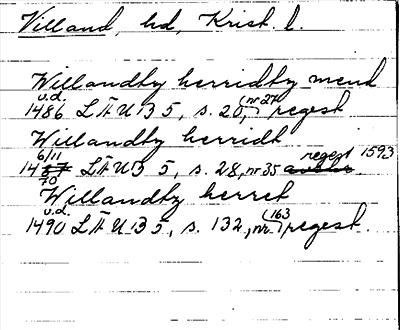 Villand, hd, Krist. l.
Willandty herridty mend
u.d.
1486 LÄUB 5, s. 20, (nr 27) regest
Willandty herridt
6/11 regest 1593
1487 LÄUB 5, s. 28, nr 35 avskr
70
Willandty herret
u.d.
1490 LÄUB 5, s. 132, (nr. 163) regest.